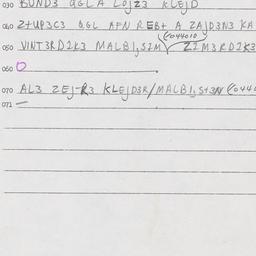 030 BUND3 GGLA LOJZ3 KLEJD
040 Z+UP3C3 GGL AFN REB+ A ZAJD3N3 KA
(044010
050 VINT3RD2K3 MALB1,S2M Z2M3RD2K3
060 O
070 AL3 ZEJ-R3 KLEJD3R/MALB1,S+3N (044
071 —